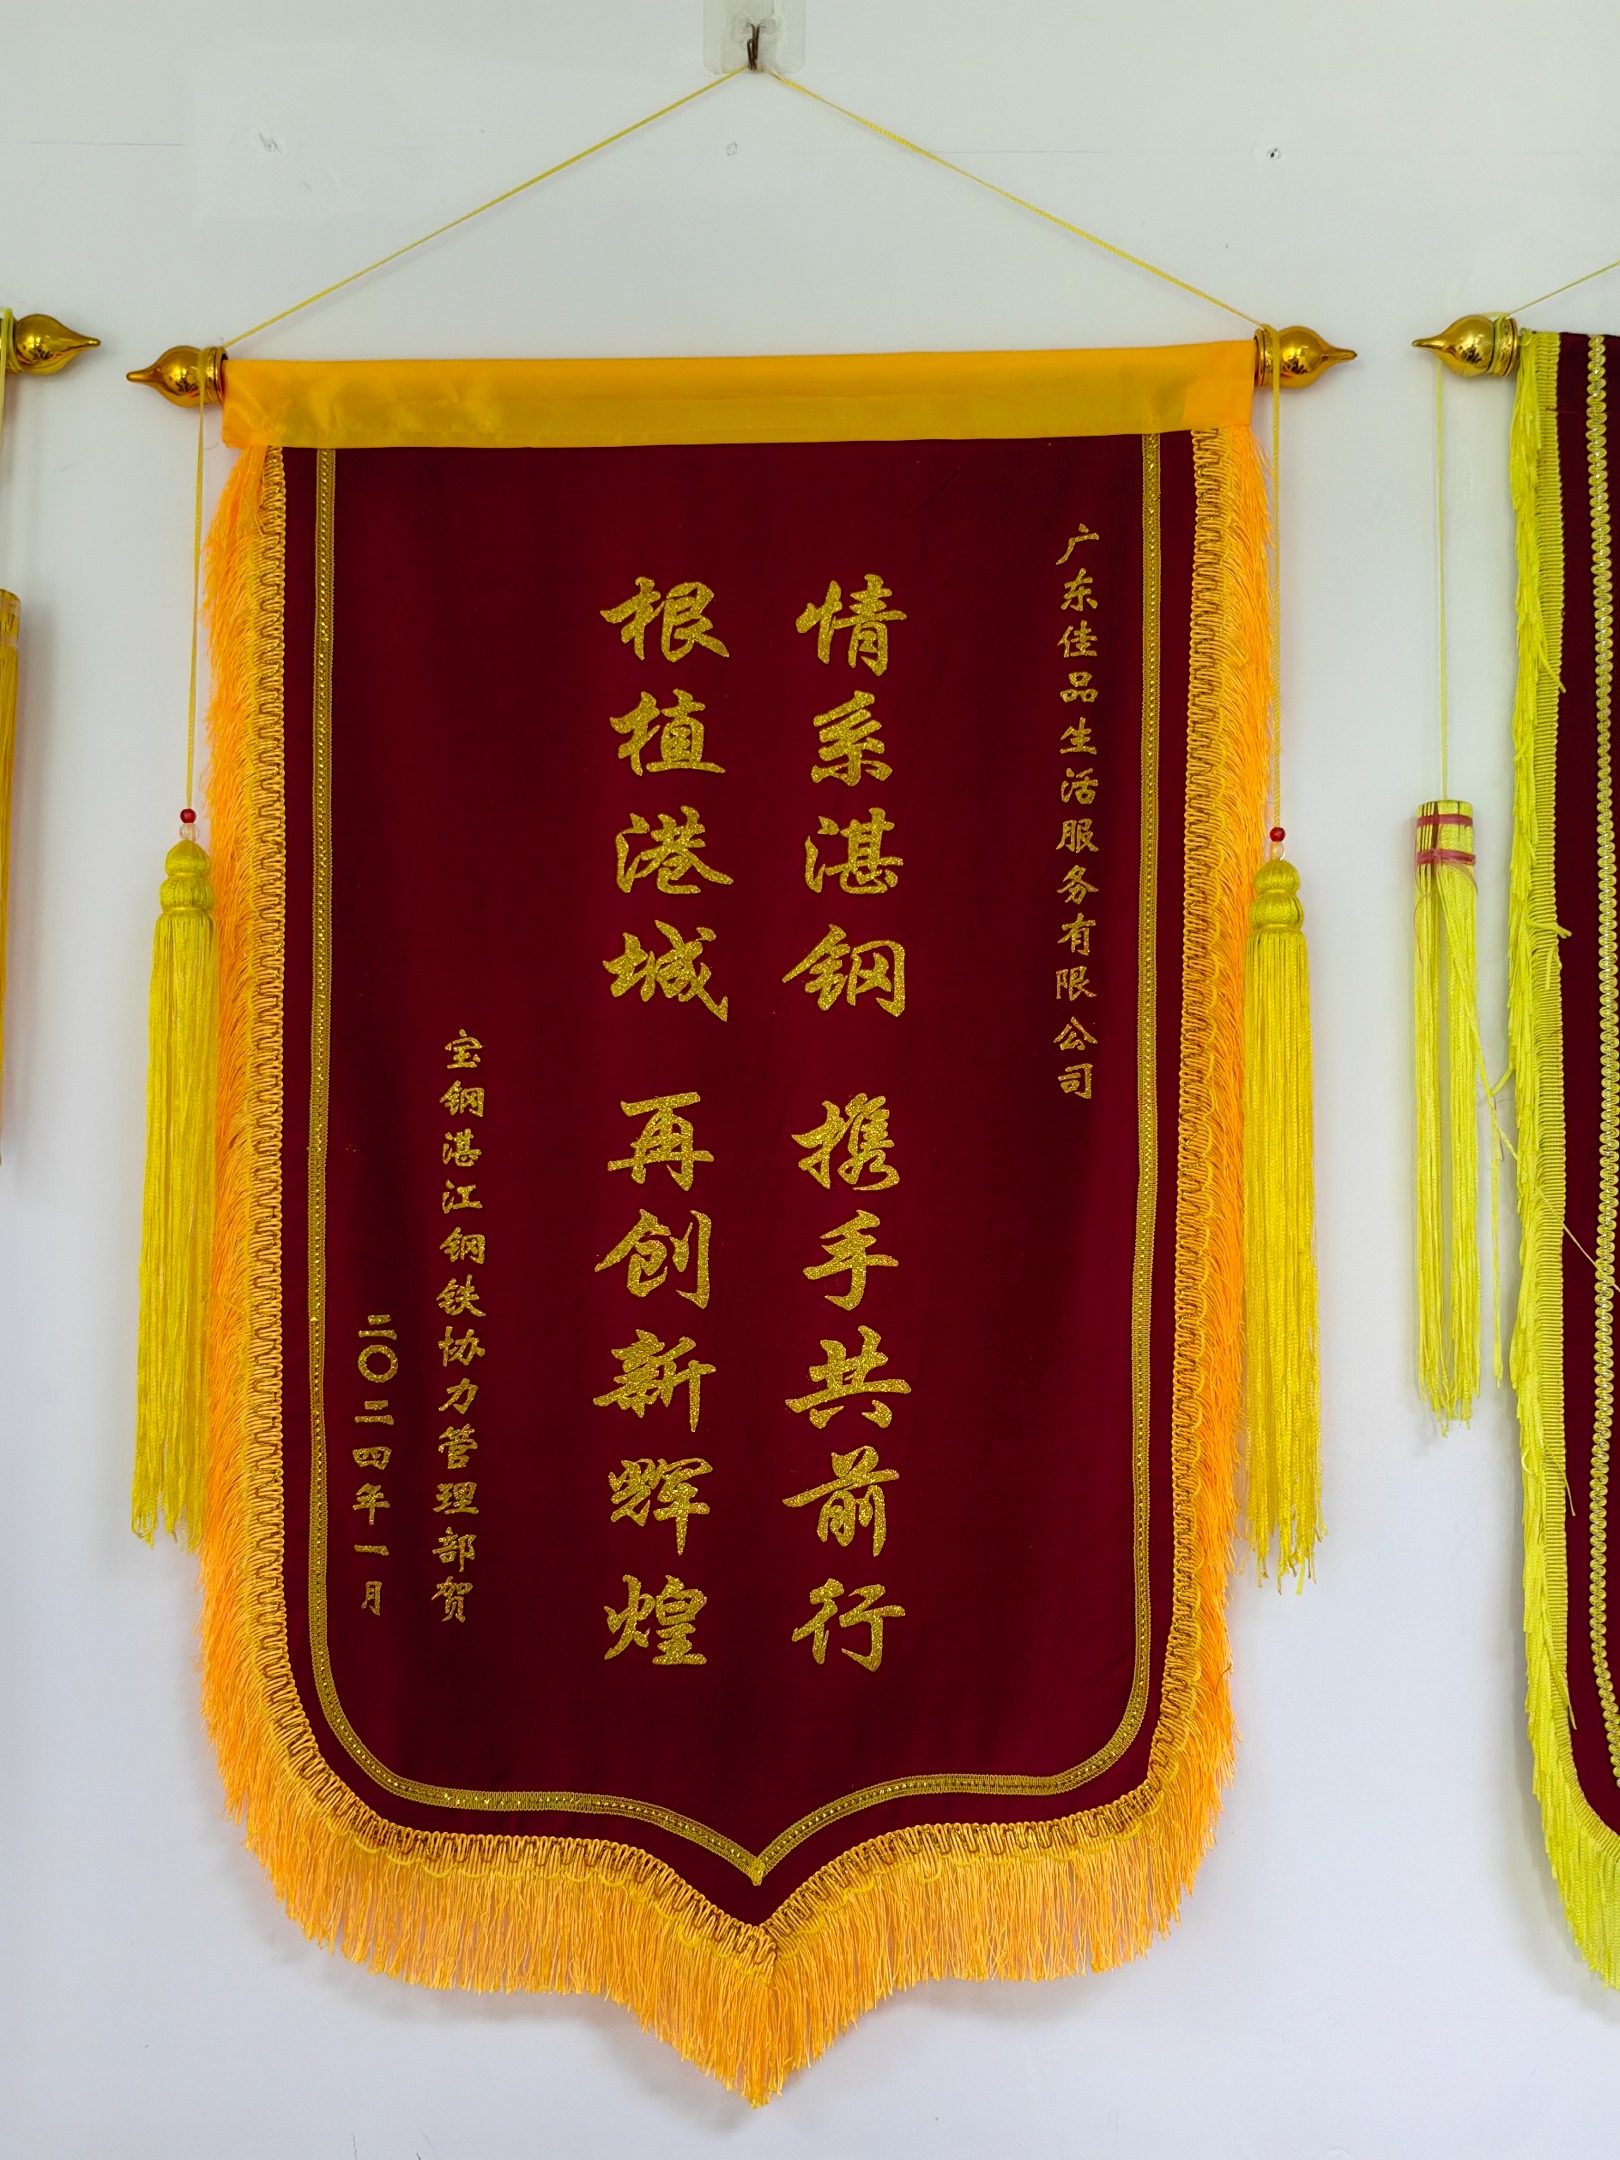 广东佳品生活服务有限公司
情系湛钢 携手共前行
根植港城 再创新辉煌
宝钢湛江钢铁协力管理部贺
二〇二四年一月